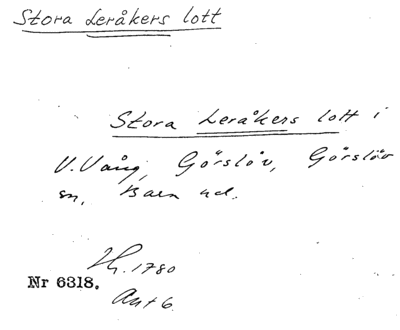 Stora Leråkers lott
Stora Leråkers lott i
V. Vång, Görslöv, Görslöv
sn, Bara hd.
Lh. 1780
Nr 6318.
Akt 6